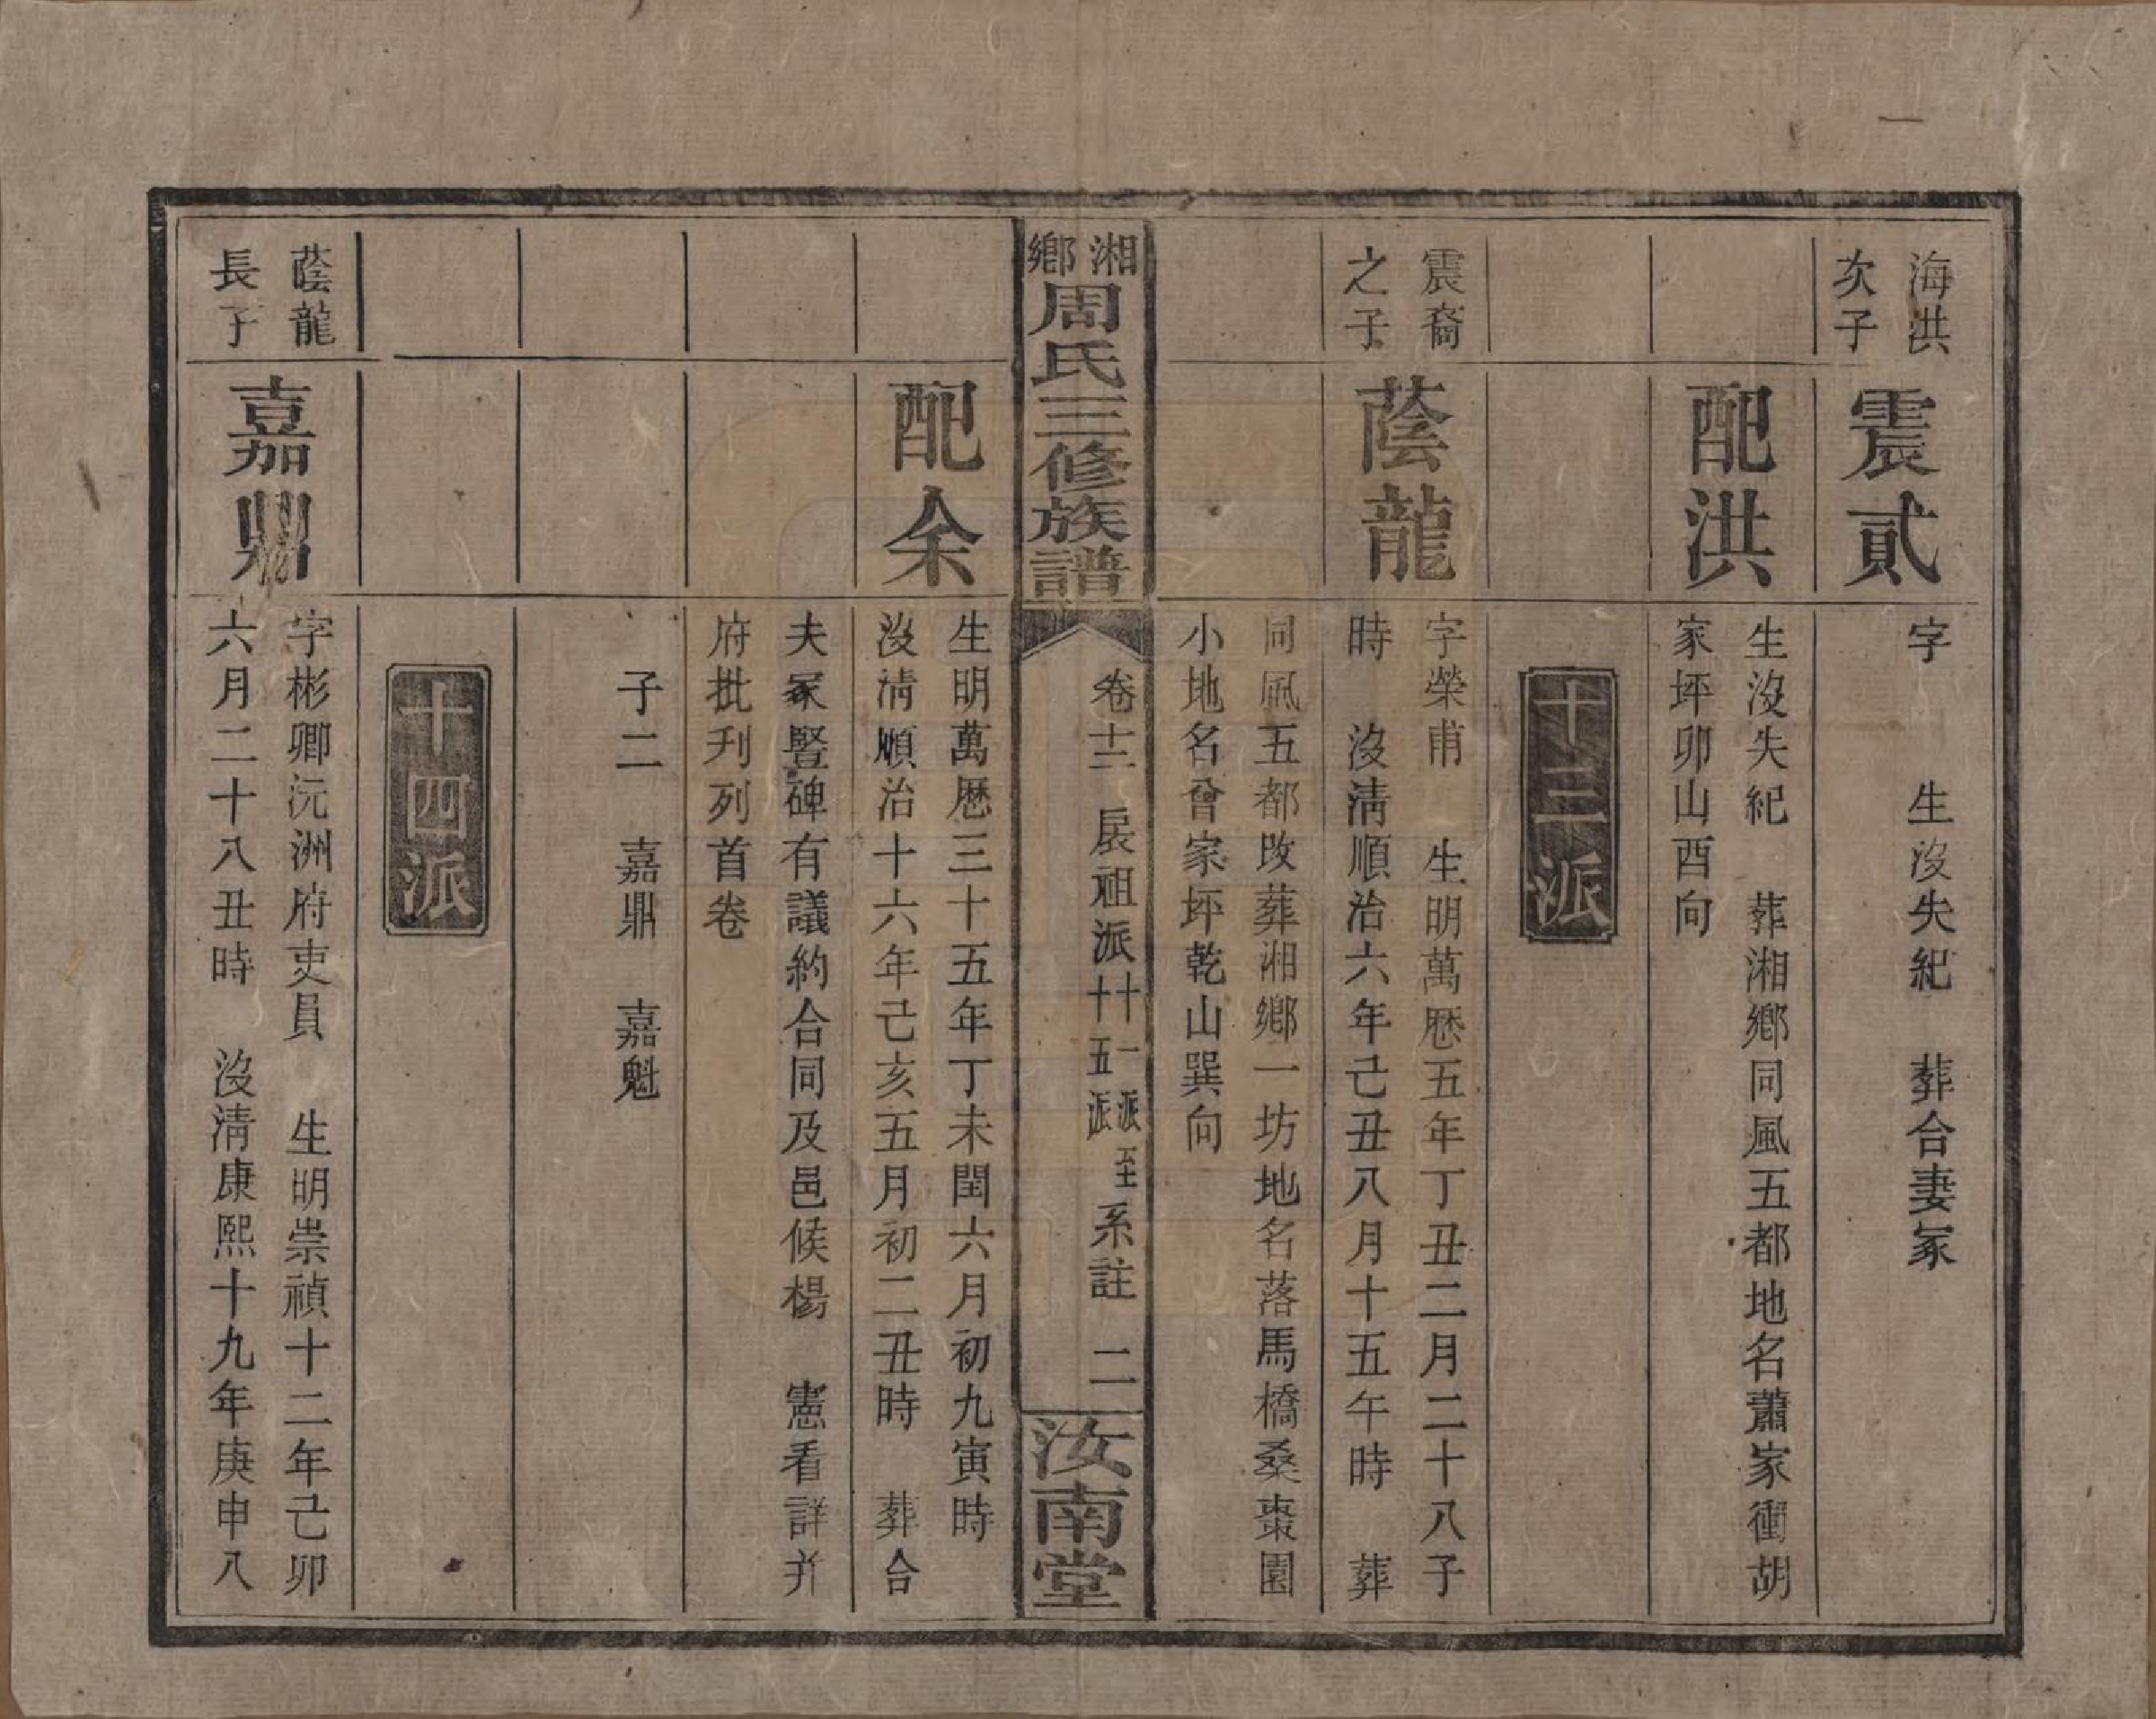 海洪
次子
震貳
字　生沒失紀　葬合妻冢
配洪
生沒失紀　葬湘鄉同風五都地名蕭家衝胡
家坪卯山酉向
十三派
震裔
之子
蔭龍
字榮甫　生明萬厯五年丁丑二月二十八子
時　沒清順治六年己丑八月十五午時　葬
同風五都改葬湘鄉一坊地名落馬橋桑棗園
小地名曾家坪乾山巽向
湘鄉
周氏三修族譜
卷十二　扆祖派十一派至十五派系註　二
汝南堂
配余
生明萬厯三十五年丁未閏六月初九寅時
沒清順治十六年己亥五月初二丑時　葬合
夫冢豎碑有議約合同及邑候楊　憲看詳并
府批刋列首卷
子二　嘉鼎　嘉魁
十四派
蔭龍
長子
嘉鼎
字彬卿沅洲府吏員　生明崇禎十二年己卯
六月二十八丑時　沒清康熙十九年庚申八